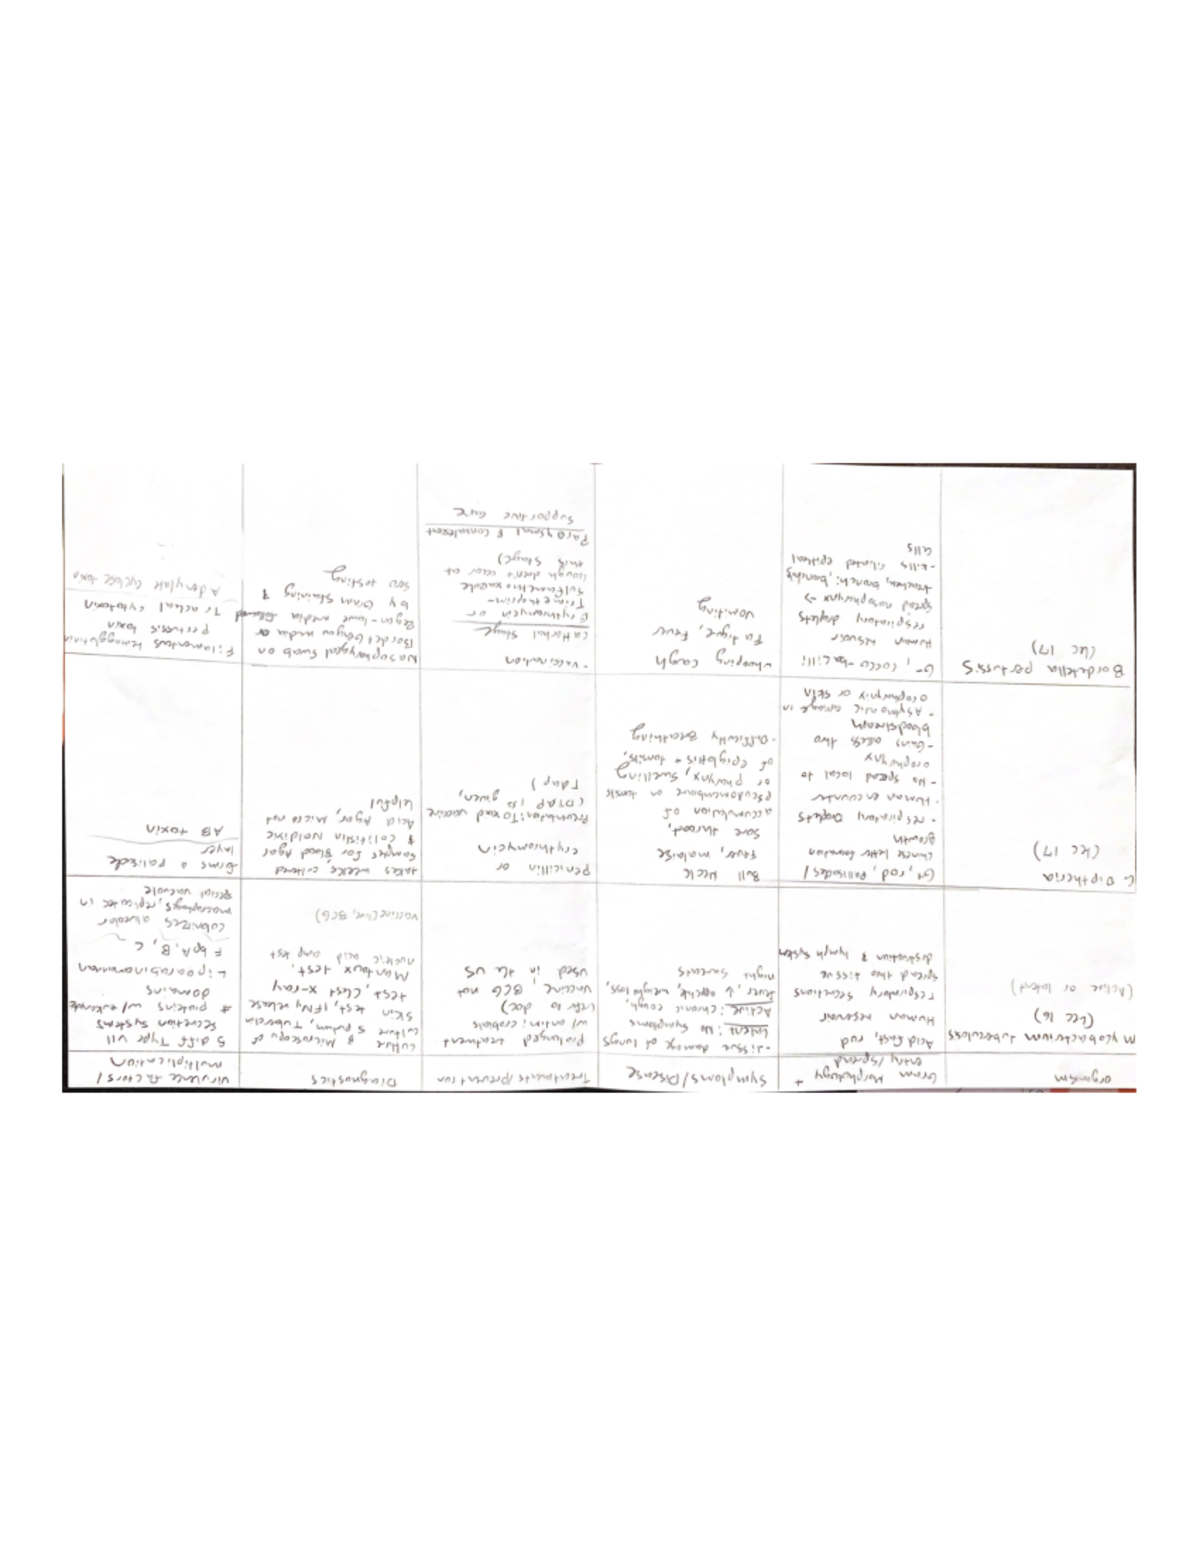 organism
Gram Morphology +
entry/spread
Symptoms/Disease
Treatments/prevention
Diagnostics
virulence factors/
multiplication
Mycobacterium tuberculoss
(Lec 16)
(Active or latent)
Acid fast, rod
Human reservoir
respiratory secretions
spread thro tissue
destruction & lymph system
- tissue damage of lungs
Latent: No symptoms
Active: chronic cough,
fever, ↓ appetite, weight loss,
night sweats
Prolonged treatment
w/ antimicrobials
(refer to doc)
vaccine, BCG not
used in the US
culture & Microscopy of
culture sputum, Tuberculin
skin test, IFNγ release
test, chest x-ray
Mantoux test,
nucleic acid amp test
vaccine (live, BCG)
5 diff Type VII
secretion systems
# proteins w/ extended
domains
Lipoarabinomannan
FbpA, B, C
colonizes alveolar
macrophages, replicates in
special vacuole
C. Diptheria
(Lec 17)
G+, rod, Palisades/
chinese letter formation
growth
- respiratory Droplets
- Human encounter
- No spread local to
oropharynx
- Gains access thro
bloodstream
- Asymptomatic carriage in
oropharynx or skin
Bull Neck
fever, malaise
sore throat,
accumulation of
pseudomembrane on tonsils
or pharynx, swelling
of epiglottis + tonsils,
- Difficulty Breathing
penicillin or
erythromycin
Prevention: Toxoid vaccine
(DTAP is given,
Tdap)
takes weeks, cultured
samples for Blood Agar
& colistin Nalidixic
Acid Agar, micro not
helpful
forms a palisade
layer
AB toxin
Bordetella pertussis
(Lec 17)
G-, cocco-bacilli
Human resivoir
respiratory droplets
spread nasopharynx →
trachea, bronchi, bronchioles
- kills ciliated epithelial
cells
whooping cough
Fatigue, fever
vomiting
- vaccination
Catarrhal stage
Erythromycin or
Trimethoprim-
sulfamethoxazole
(cough doesn't occur at
this stage)
Paroxysmal & convalescent
supportive care
Nasopharyngeal swab on
Bordet Gengou media or
Regan-Lowe media followed
by Gram staining &
sero testing
Filamentous hemagglutinin
pertussis toxin
Tracheal cytotoxin
Adenylate cyclase toxin